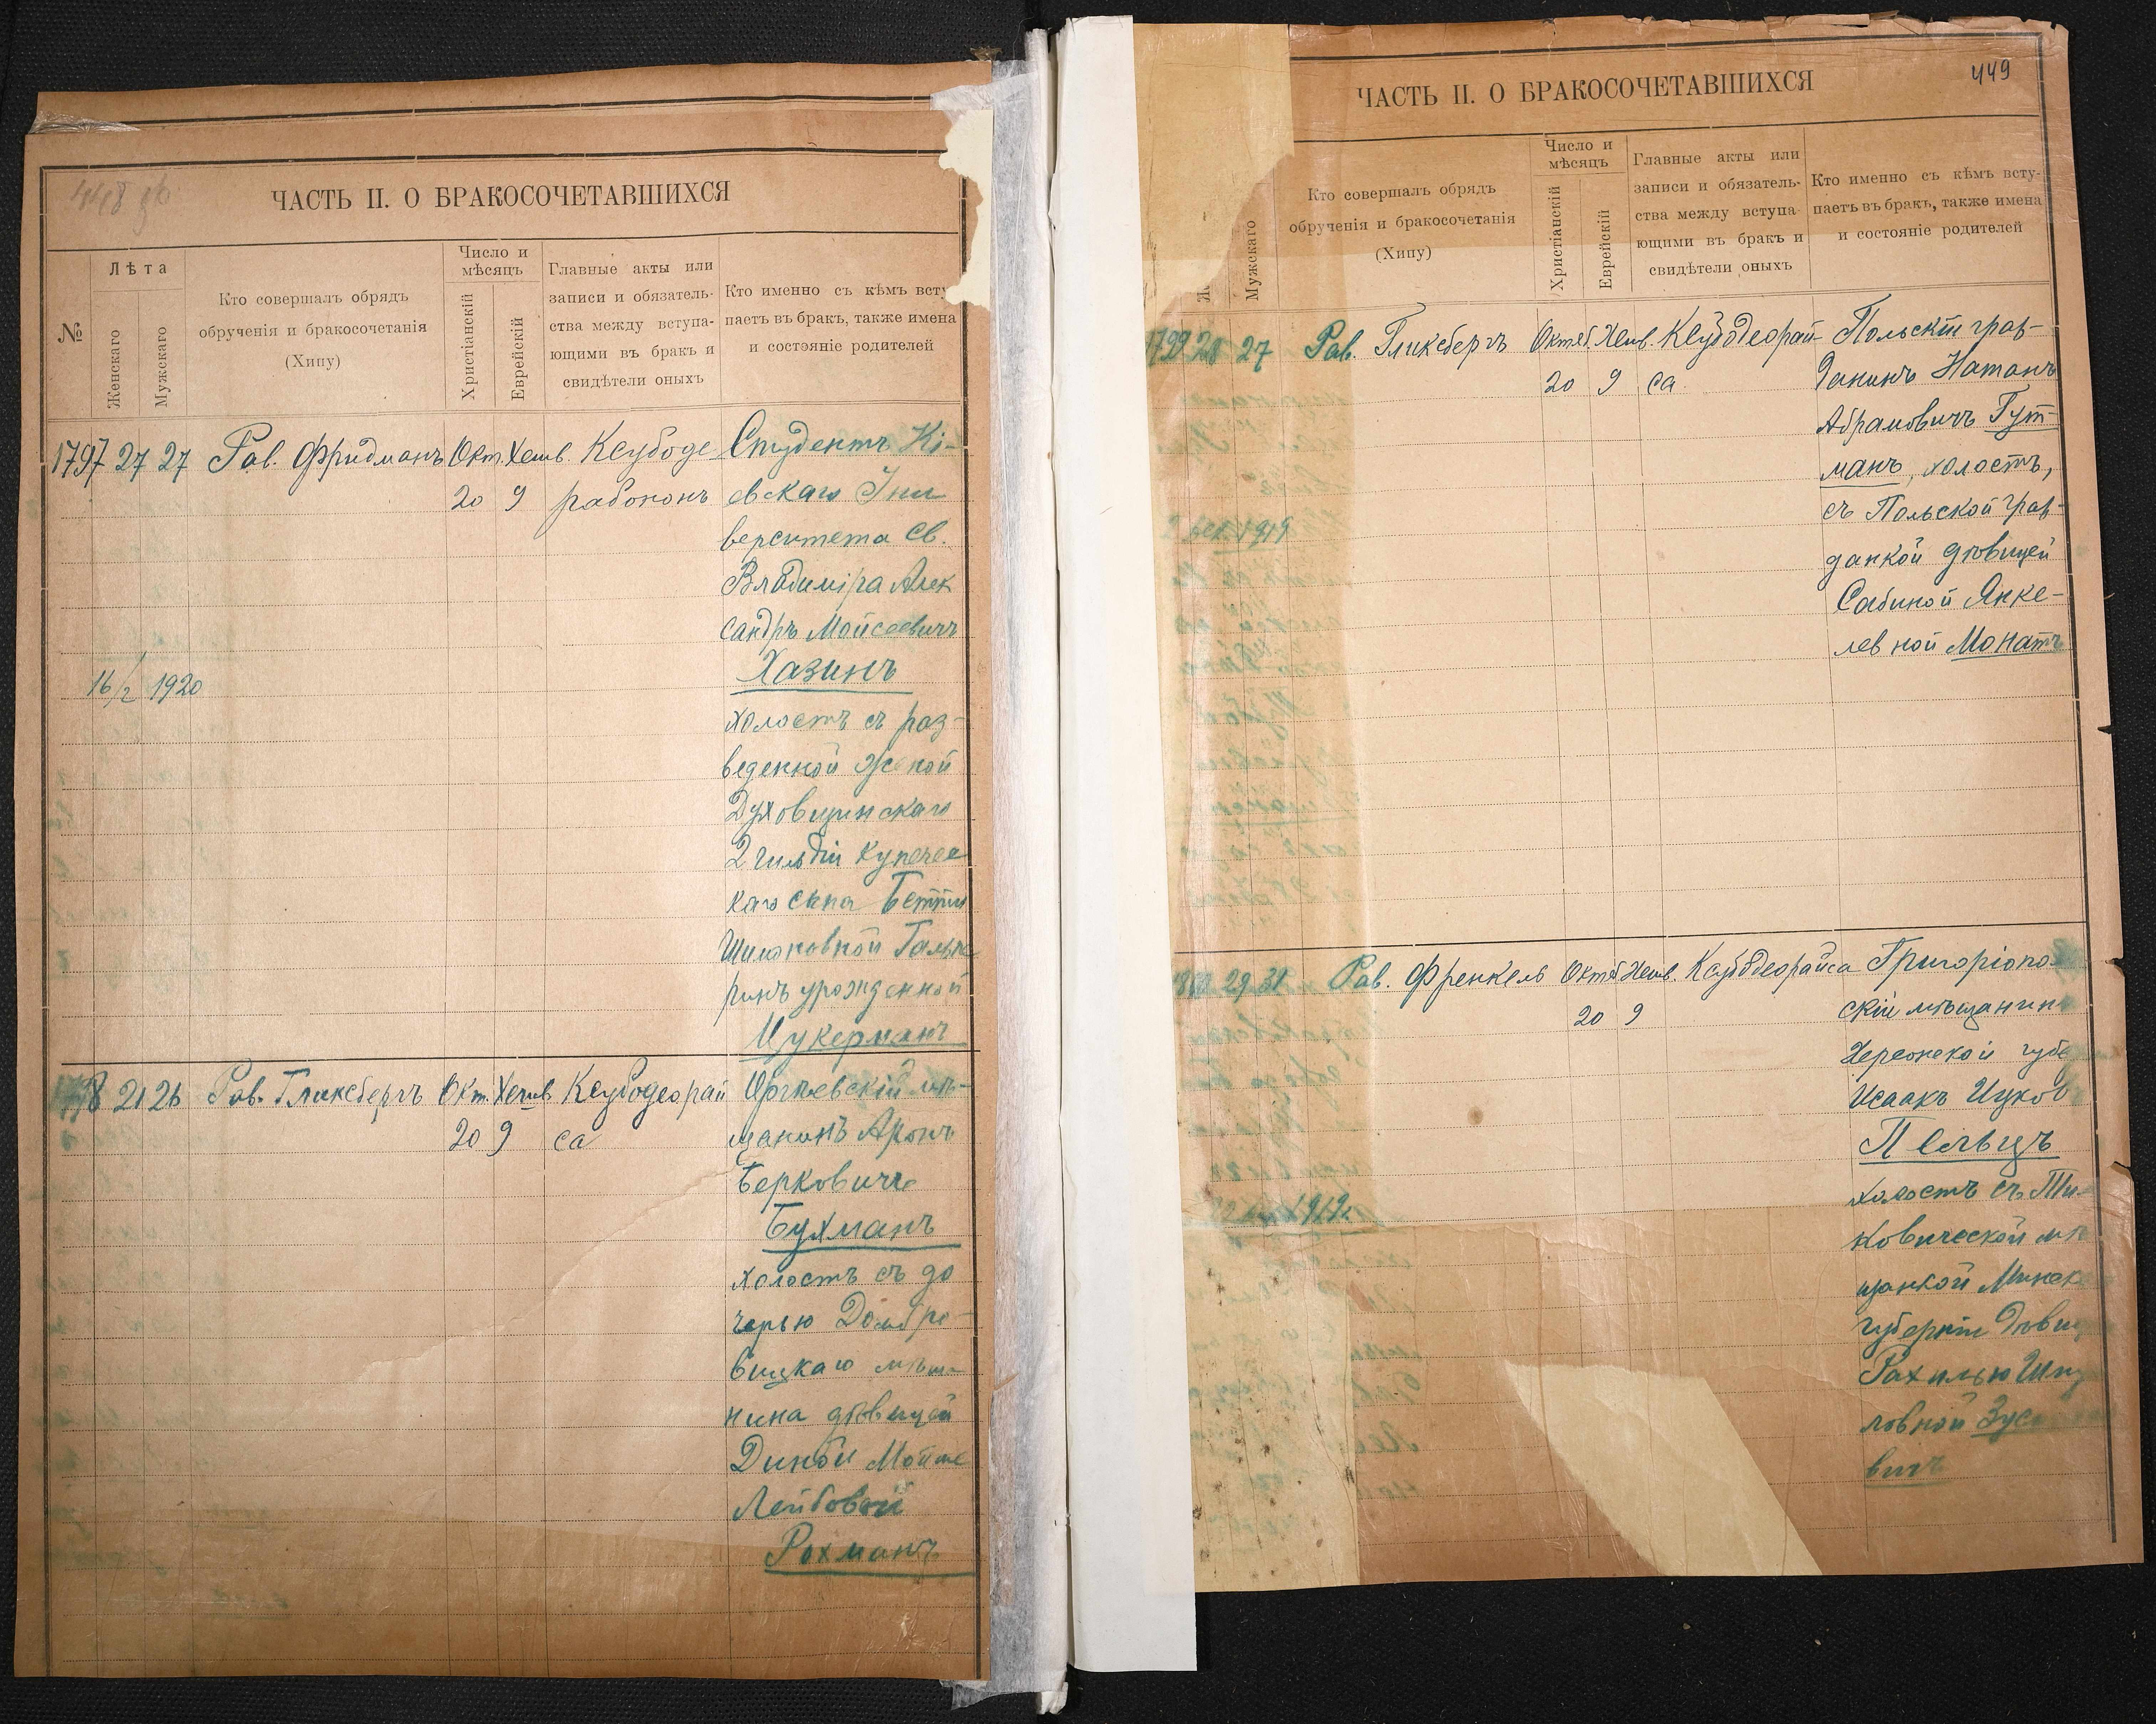 448 об.
ЧАСТЬ II. О БРАКОСОЧЕТАВШИХСЯ
№
Лѣта
Женскаго
Мужскаго
Кто совершалъ обрядъ
обрученія и бракосочетанія
(Хипу)
Число и
мѣсяцъ
Христіанскій
Еврейскій
Главные акты или
записи и обязатель-
ства между вступа-
ющими въ бракъ и
свидѣтели оныхъ
Кто именно съ кѣмъ всту
паетъ въ бракъ, также имена
и состояніе родителей
1797 27 27 Рав. Фридманъ Окт. Хешв. Ксубоде Студентъ Кі-
20 9 рабононъ евскаго Уни
верситета Св.
Владиміра Алек
сандръ Мойсеевичъ
Хазинъ
16/2 1920
холостъ съ раз-
веденной женой
Духовщинскаго
2 гильдіи купечес
каго сына Бетти
Шимоновной Гальпе
ринъ урожденной
Цукерманъ
98 21 26 Рав. Гликсбергъ Окт. Хешв. Ксубодеорай Оргѣевскій мѣ-
20 9 са щанинъ Аронъ
Берковичъ
Бухманъ
холостъ съ до
черью Домбро-
вицкаго мѣща
нина дѣвицей
Диной Мойше
Лейбовой
Рохманъ
449
ЧАСТЬ II. О БРАКОСОЧЕТАВШИХСЯ
Мужскаго
Кто совершалъ обрядъ
обрученія и бракосочетанія
(Хипу)
Число и
мѣсяцъ
Христіанскій
Еврейскій
Главные акты или
записи и обязатель-
ства между вступа-
ющими въ бракъ и
свидѣтели оныхъ
Кто именно съ кѣмъ всту-
паетъ въ бракъ, также имена
и состояніе родителей
1799 28 27 Рав. Гликсбергъ Октяб. Хешв. Ксубодеорай- Польскій граж-
20 9 са данинъ Натанъ
Абрамовичъ Гут-
манъ, холостъ,
съ Польской граж-
данкой дѣвицей
Сабиной Янке-
левной Монатъ
2 дек. 1919
1800 29 31 Рав. Френкель Октяб Хешв. Ксубодеорайса Григоріопо
20 9 скій мѣщанинъ
Херсонской губ
Исаакъ Ицков
Пельцъ
холостъ съ Ти-
ковической мѣ
щанкой Минск
губерніи дѣвиц
Рахилью
ловной Зус
вичъ
1919г.